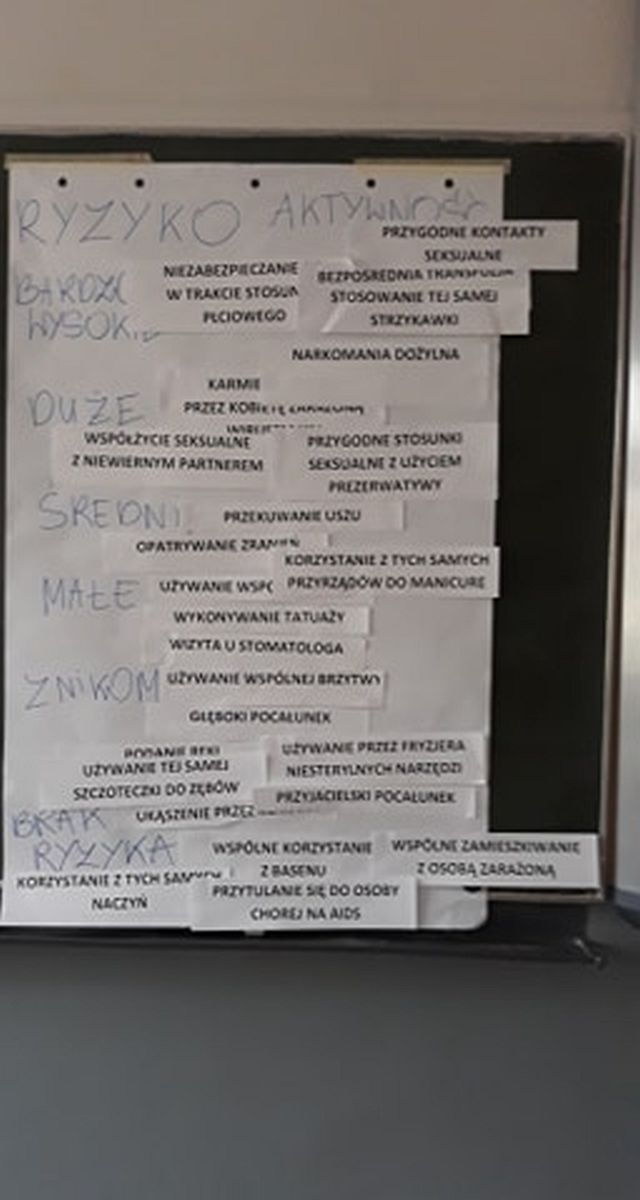 RYZYKO AKTYWNOŚĆ
PRZYGODNE KONTAKTY
SEKSUALNE
BARDZO
WYSOKIE
NIEZABEZPIECZANIE
W TRAKCIE STOSUN
PŁCIOWEGO
BEZPOŚREDNIA TRANSFUZJA
STOSOWANIE TEJ SAMEJ
STRZYKAWKI
NARKOMANIA DOŻYLNA
KARMIE
PRZEZ KOBIETĘ ZARAŻONĄ
DUŻE
WSPÓŁŻYCIE SEKSUALNE
Z NIEWIERNYM PARTNEREM
PRZYGODNE STOSUNKI
SEKSUALNE Z UŻYCIEM
PREZERWATYWY
ŚREDNI
PRZEKUWANIE USZU
OPATRYWANIE ZRANIEŃ
KORZYSTANIE Z TYCH SAMYCH
PRZYRZĄDÓW DO MANICURE
MAŁE
UŻYWANIE WSPÓ
WYKONYWANIE TATUAŻY
WIZYTA U STOMATOLOGA
ZNIKOM
UŻYWANIE WSPÓLNEJ BRZYTWY
GŁĘBOKI POCAŁUNEK
PODANIE RĘKI
UŻYWANIE TEJ SAMEJ
SZCZOTECZKI DO ZĘBÓW
UŻYWANIE PRZEZ FRYZJERA
NIESTERYLNYCH NARZĘDZI
PRZYJACIELSKI POCAŁUNEK
UKĄSZENIE PRZEZ
BRAK
RYZYKA
WSPÓLNE KORZYSTANIE
Z BASENU
WSPÓLNE ZAMIESZKIWANIE
Z OSOBĄ ZARAŻONĄ
KORZYSTANIE Z TYCH SAMYCH
NACZYŃ
PRZYTULANIE SIĘ DO OSOBY
CHOREJ NA AIDS